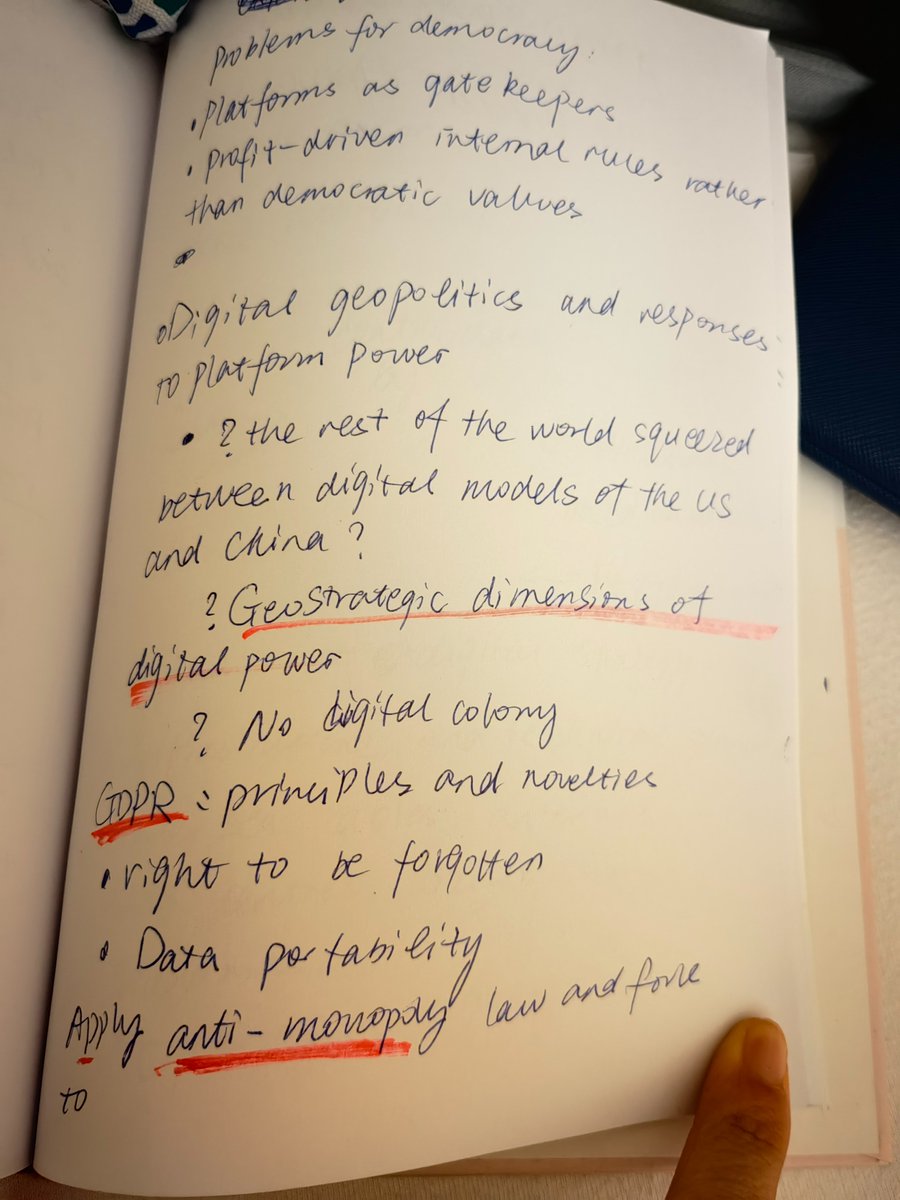 Problems for democracy:
• Platforms as gate keepers
• Profit-driven internal rules rather
than democratic values
Digital geopolitics and responses
to platform power
• ? the rest of the world squeezed
between digital models of the US
and China ?
? Geostrategic dimensions of
digital power
? No digital colony
GDPR : principles and novelties
• right to be forgotten
• Data portability
Apply anti-monopoly law and
to